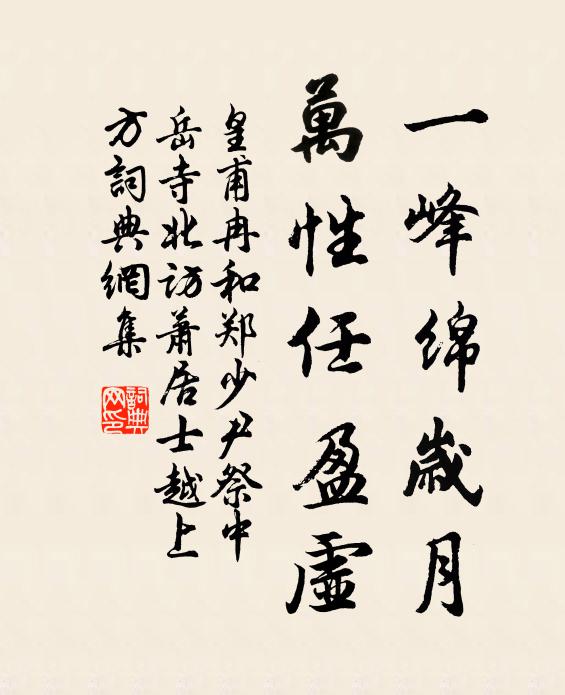 一峰绵歲月
萬性任盈虛
皇甫冉和郑少尹祭中
岳寺北访萧居士越上
方詞典網集
詞典
网印